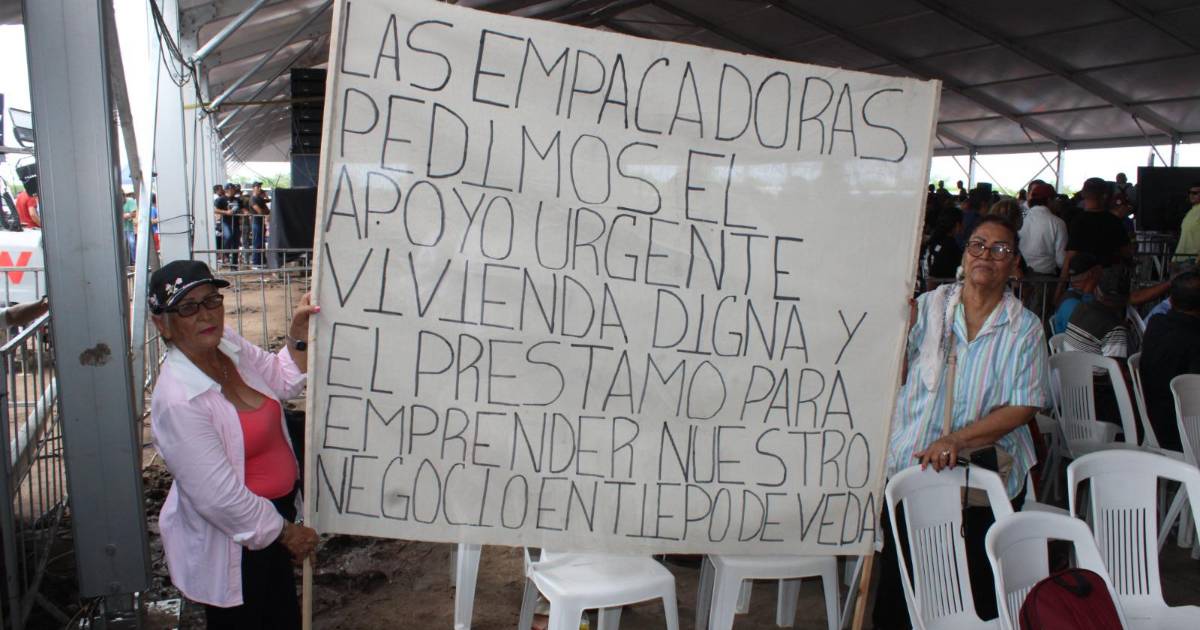 LAS EMPACADORAS
PEDIMOS EL
APOYO URGENTE
VIVIENDA DIGNA Y
EL PRESTAMO PARA
EMPRENDER NUESTRO
NEGOCIO EN TIEPO DE VEDA